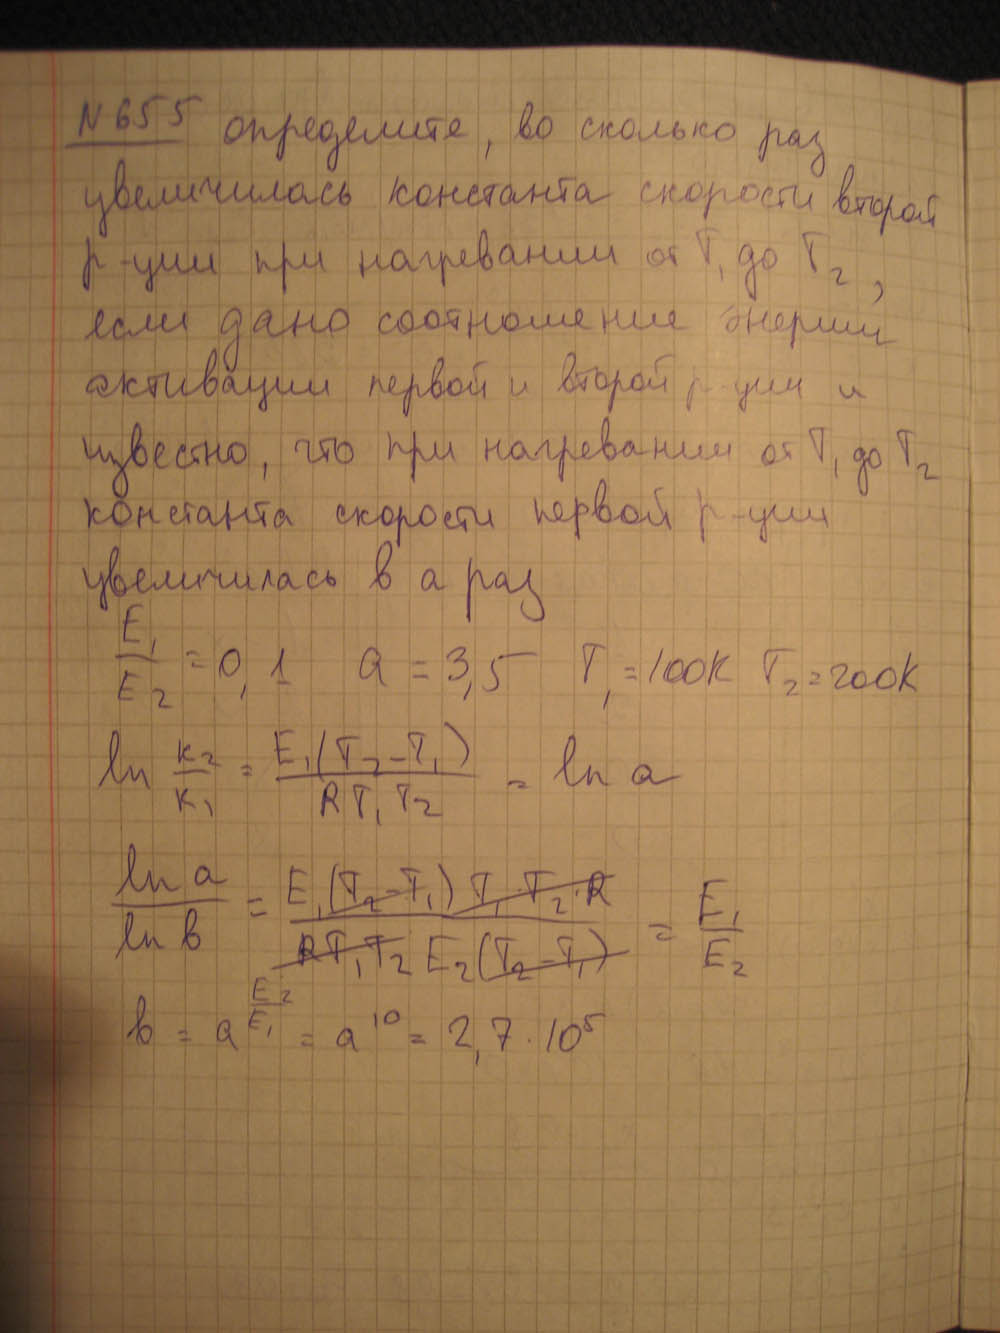 N 655 определите, во сколько раз
увеличилась константа скорости второй
р-ции при нагревании от T₁ до T₂,
если дано соотношение энергии
активации первой и второй р-ции и
известно, что при нагревании от T₁ до T₂
константа скорости первой р-ции
увеличилась в а раз
E₁/E₂ = 0,1 a = 3,5 T₁ = 100K T₂ = 200K
ln K₂/K₁ = E₁(T₂-T₁)/RT₁T₂ = ln a
ln a/ln b = E₁(T₂-T₁)T₁·T₂·R/RT₁T₂E₂(T₂-T₁) = E₁/E₂
b = a^(E₂/E₁) = a¹⁰ = 2,7·10⁵